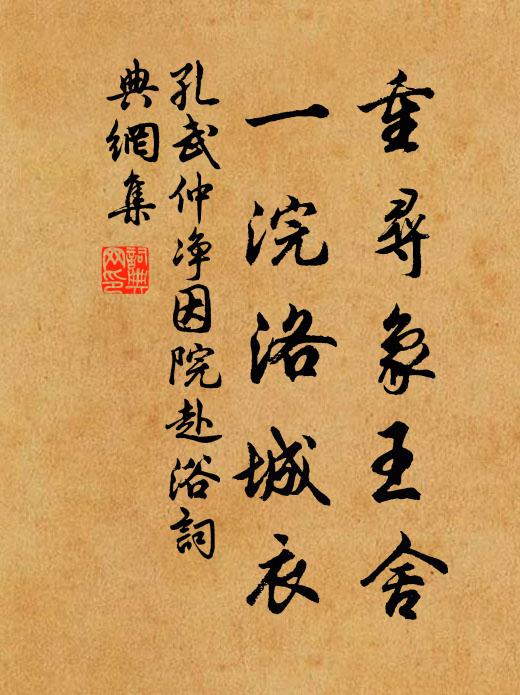 重尋象王舍
一浣洛城衣
孔武仲净因院赴浴詞
典網集
詞典網印